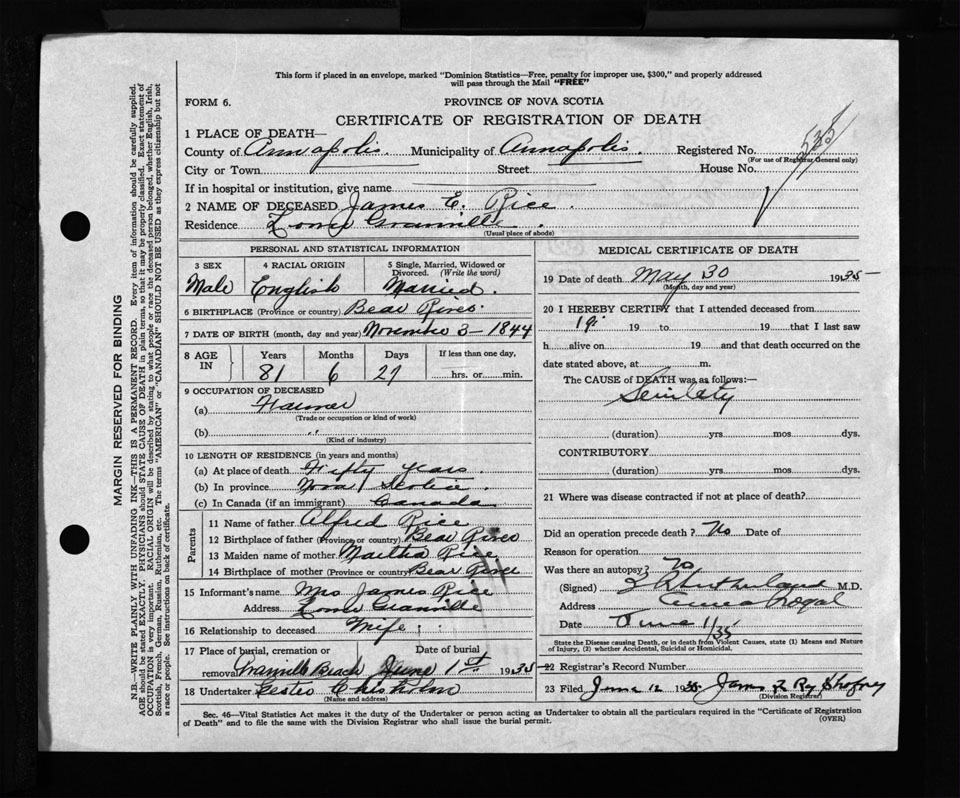 This form if placed in an envelope, marked "Dominion Statistics—Free, penalty for improper use, $300," and properly addressed
will pass through the Mail "FREE"
FORM 6.
PROVINCE OF NOVA SCOTIA
CERTIFICATE OF REGISTRATION OF DEATH
1 PLACE OF DEATH—
County of Annapolis Municipality of Annapolis Registered No. 535
(For use of Registrar General only)
City or Town Street House No.
If in hospital or institution, give name
2 NAME OF DECEASED James E. Rice
Residence Lower Granville
(Usual place of abode)
PERSONAL AND STATISTICAL INFORMATION
3 SEX 4 RACIAL ORIGIN 5 Single, Married, Widowed or Divorced. (Write the word)
Male English Married.
6 BIRTHPLACE (Province or country) Bear River
7 DATE OF BIRTH (month, day and year) November 3-1844
8 AGE IN Years Months Days If less than one day,
81 6 27 hrs. or min.
9 OCCUPATION OF DECEASED
(a) Farmer
(Trade or occupation or kind of work)
(b) "
(Kind of industry)
10 LENGTH OF RESIDENCE (in years and months)
(a) At place of death Fifty years.
(b) In province Nova Scotia
(c) In Canada (if an immigrant) Canada
Parents
11 Name of father Alfred Rice
12 Birthplace of father (Province or country) Bear River
13 Maiden name of mother Martha Rice
14 Birthplace of mother (Province or country) Bear River
15 Informant's name Mrs James Rice
Address Lower Granville
16 Relationship to deceased Wife
17 Place of burial, cremation or removal Date of burial
Granville Beach June 1st 1935
18 Undertaker Chisholm
(Name and address)
MEDICAL CERTIFICATE OF DEATH
19 Date of death May 30 1935
(Month, day and year)
20 I HEREBY CERTIFY that I attended deceased from
19 to 19 that I last saw
h alive on 19 and that death occurred on the
date stated above, at m.
The CAUSE of DEATH was as follows:—
(duration) yrs. mos. dys.
CONTRIBUTORY
(duration) yrs. mos. dys.
21 Where was disease contracted if not at place of death?
Did an operation precede death? No Date of
Reason for operation
Was there an autopsy? No
(Signed) Sutherland M.D.
Address Annap Royal
Date June 1/35
State the Disease causing Death, or in death from Violent Causes, state (1) Means and Nature
of Injury, (2) whether Accidental, Suicidal or Homicidal.
22 Registrar's Record Number
23 Filed June 12 1935
(Division Registrar)
Sec. 46—Vital Statistics Act makes it the duty of the Undertaker or person acting as Undertaker to obtain all the particulars required in the "Certificate of Registration
of Death" and to file the same with the Division Registrar who shall issue the burial permit.
(OVER)
MARGIN RESERVED FOR BINDING
N.B.—WRITE PLAINLY WITH UNFADING INK—THIS IS A PERMANENT RECORD. Every item of information should be carefully supplied.
AGE should be stated EXACTLY. PHYSICIANS should STATE CAUSE OF DEATH in plain terms, so that it may be properly classified. Exact statement of
OCCUPATION is very important. RACIAL ORIGIN will be described by stating to what people or race the deceased person belonged, whether English, Irish,
Scottish, French, German, Russian, Ruthenian, etc. The terms "AMERICAN" or "CANADIAN" SHOULD NOT BE USED as they express citizenship but not
a race or people. See instructions on back of certificate.